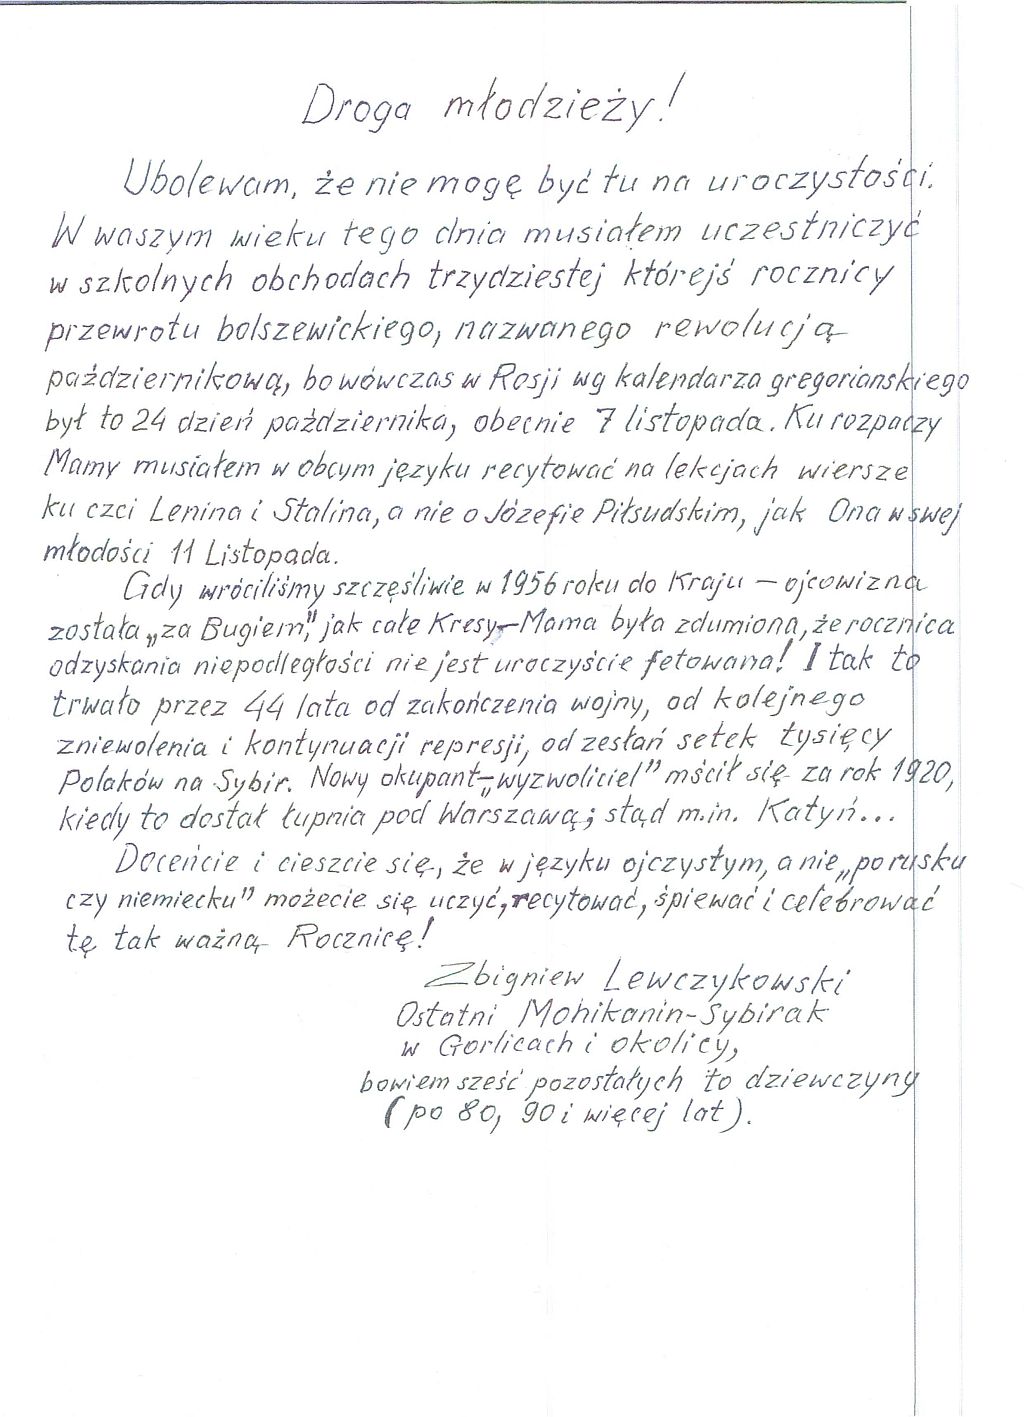 Droga młodzieży!
Ubolewam, że nie mogę być tu na uroczystości.
W waszym wieku tego dnia musiałem uczestniczyć
w szkolnych obchodach trzydziestej którejś rocznicy
przewrotu bolszewickiego, nazwanego rewolucją
październikową, bo wówczas w Rosji wg kalendarza gregoriańskiego
był to 24 dzień października, obecnie 7 listopada. Ku rozpaczy
Mamy musiałem w obcym języku recytować na lekcjach wiersze
ku czci Lenina i Stalina, a nie o Józefie Piłsudskim, jak Ona w swej
młodości 11 Listopada.
Gdy wróciliśmy szczęśliwie w 1956 roku do Kraju — ojcowizna
została „za Bugiem," jak całe Kresy — Mama była zdumiona, że rocznica
odzyskania niepodległości nie jest uroczyście fetowana! I tak to
trwało przez 44 lata od zakończenia wojny, od kolejnego
zniewolenia i kontynuacji represji, od zesłań setek tysięcy
Polaków na Sybir. Nowy okupant-„wyzwoliciel" mścił się za rok 1920,
kiedy to dostał łupnia pod Warszawą; stąd m.in. Katyń...
Doceńcie i cieszcie się, że w języku ojczystym, a nie „po rusku
czy niemiecku" możecie się uczyć, recytować, śpiewać i celebrować
tę tak ważną Rocznicę!
Zbigniew Lewczykowski
Ostatni Mohikanin-Sybirak
w Gorlicach i okolicy,
bowiem sześć pozostałych to dziewczyny
(po 80, 90 i więcej lat).